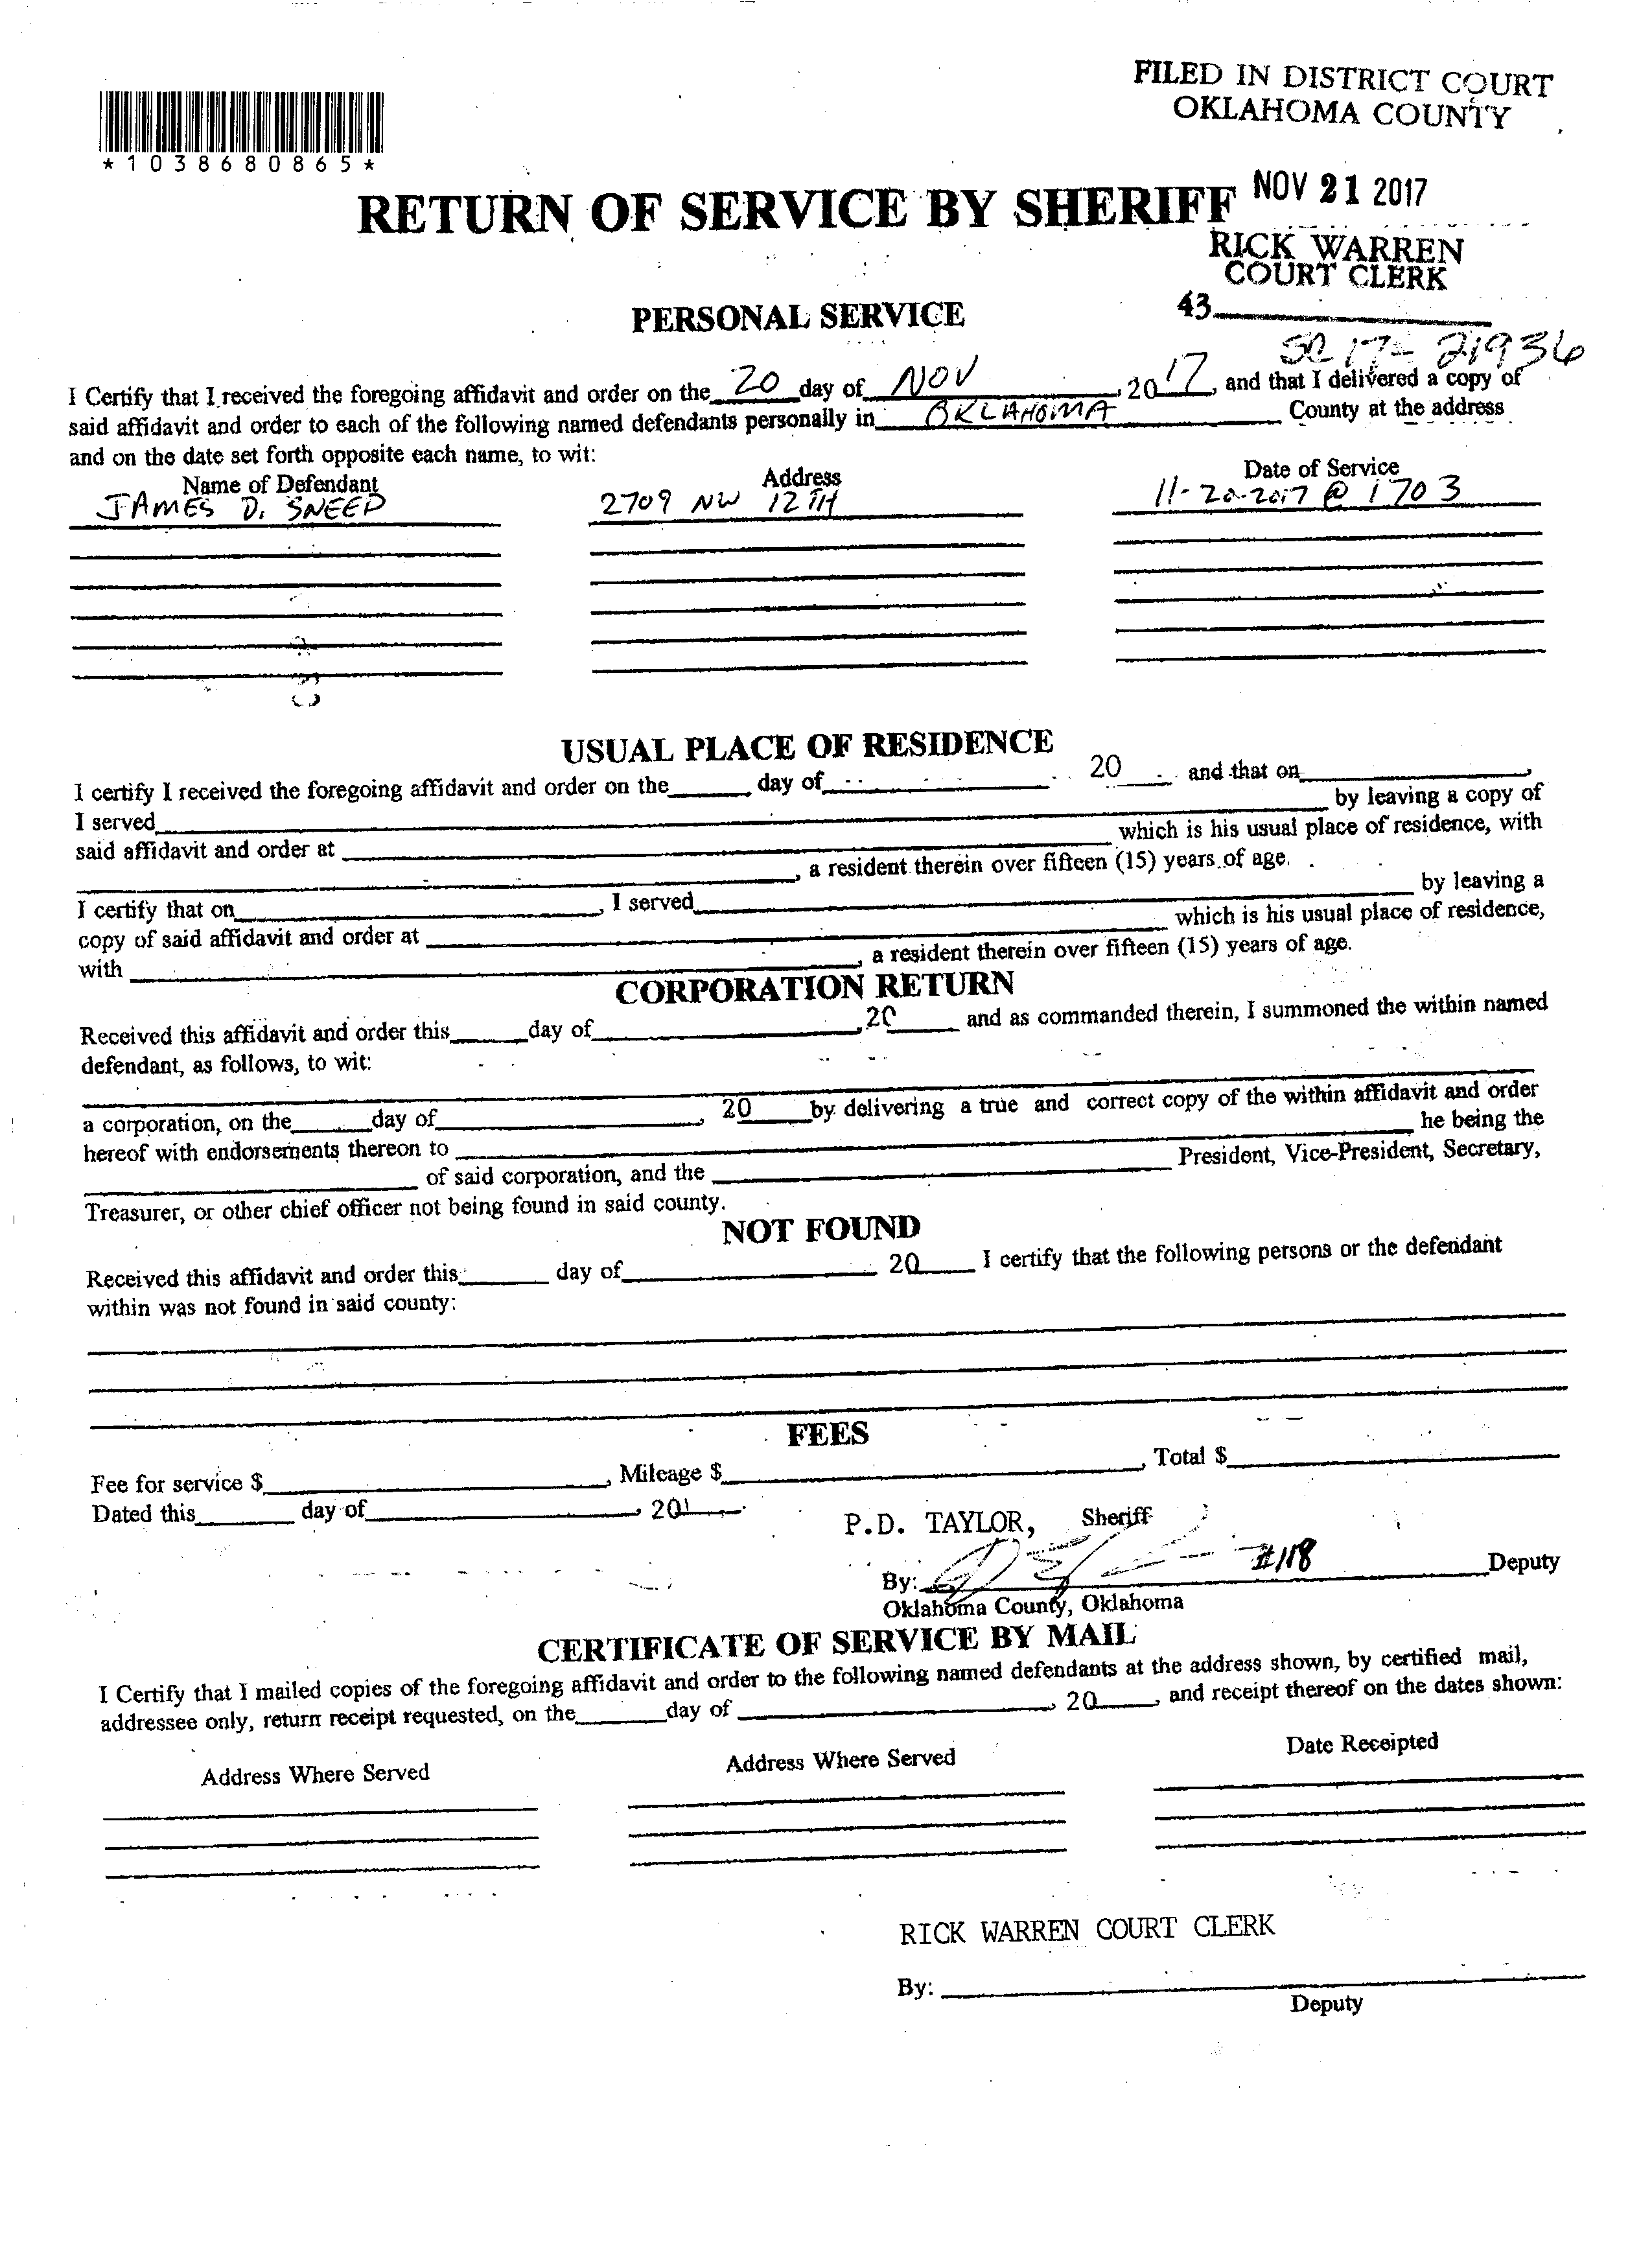 FILED IN DISTRICT COURT
OKLAHOMA COUNTY
*1038680865*
RETURN OF SERVICE BY SHERIFF
NOV 21 2017
RICK WARREN
COURT CLERK
PERSONAL SERVICE
43
SC 17- 21936
I Certify that I received the foregoing affidavit and order on the 20 day of NOV, 2017, and that I delivered a copy of
said affidavit and order to each of the following named defendants personally in OKLAHOMA County at the address
and on the date set forth opposite each name, to wit:
Name of Defendant Address Date of Service
JAMES D. SNEED 2709 NW 12TH 11-20-2017 @ 1703
USUAL PLACE OF RESIDENCE
I certify I received the foregoing affidavit and order on the day of 20 and that on ,
I served by leaving a copy of
said affidavit and order at which is his usual place of residence, with
, a resident therein over fifteen (15) years of age.
I certify that on , I served by leaving a
copy of said affidavit and order at which is his usual place of residence,
with , a resident therein over fifteen (15) years of age.
CORPORATION RETURN
Received this affidavit and order this day of , 20 and as commanded therein, I summoned the within named
defendant, as follows, to wit:
a corporation, on the day of , 20 by delivering a true and correct copy of the within affidavit and order
hereof with endorsements thereon to he being the
of said corporation, and the President, Vice-President, Secretary,
Treasurer, or other chief officer not being found in said county.
NOT FOUND
Received this affidavit and order this day of 20 I certify that the following persons or the defendant
within was not found in said county:
FEES
Fee for service $ , Mileage $ , Total $
Dated this day of , 201
P.D. TAYLOR, Sheriff
By: #118 Deputy
Oklahoma County, Oklahoma
CERTIFICATE OF SERVICE BY MAIL
I Certify that I mailed copies of the foregoing affidavit and order to the following named defendants at the address shown, by certified mail,
addressee only, return receipt requested, on the day of , 20 , and receipt thereof on the dates shown:
Address Where Served Address Where Served Date Receipted
RICK WARREN COURT CLERK
By:
Deputy